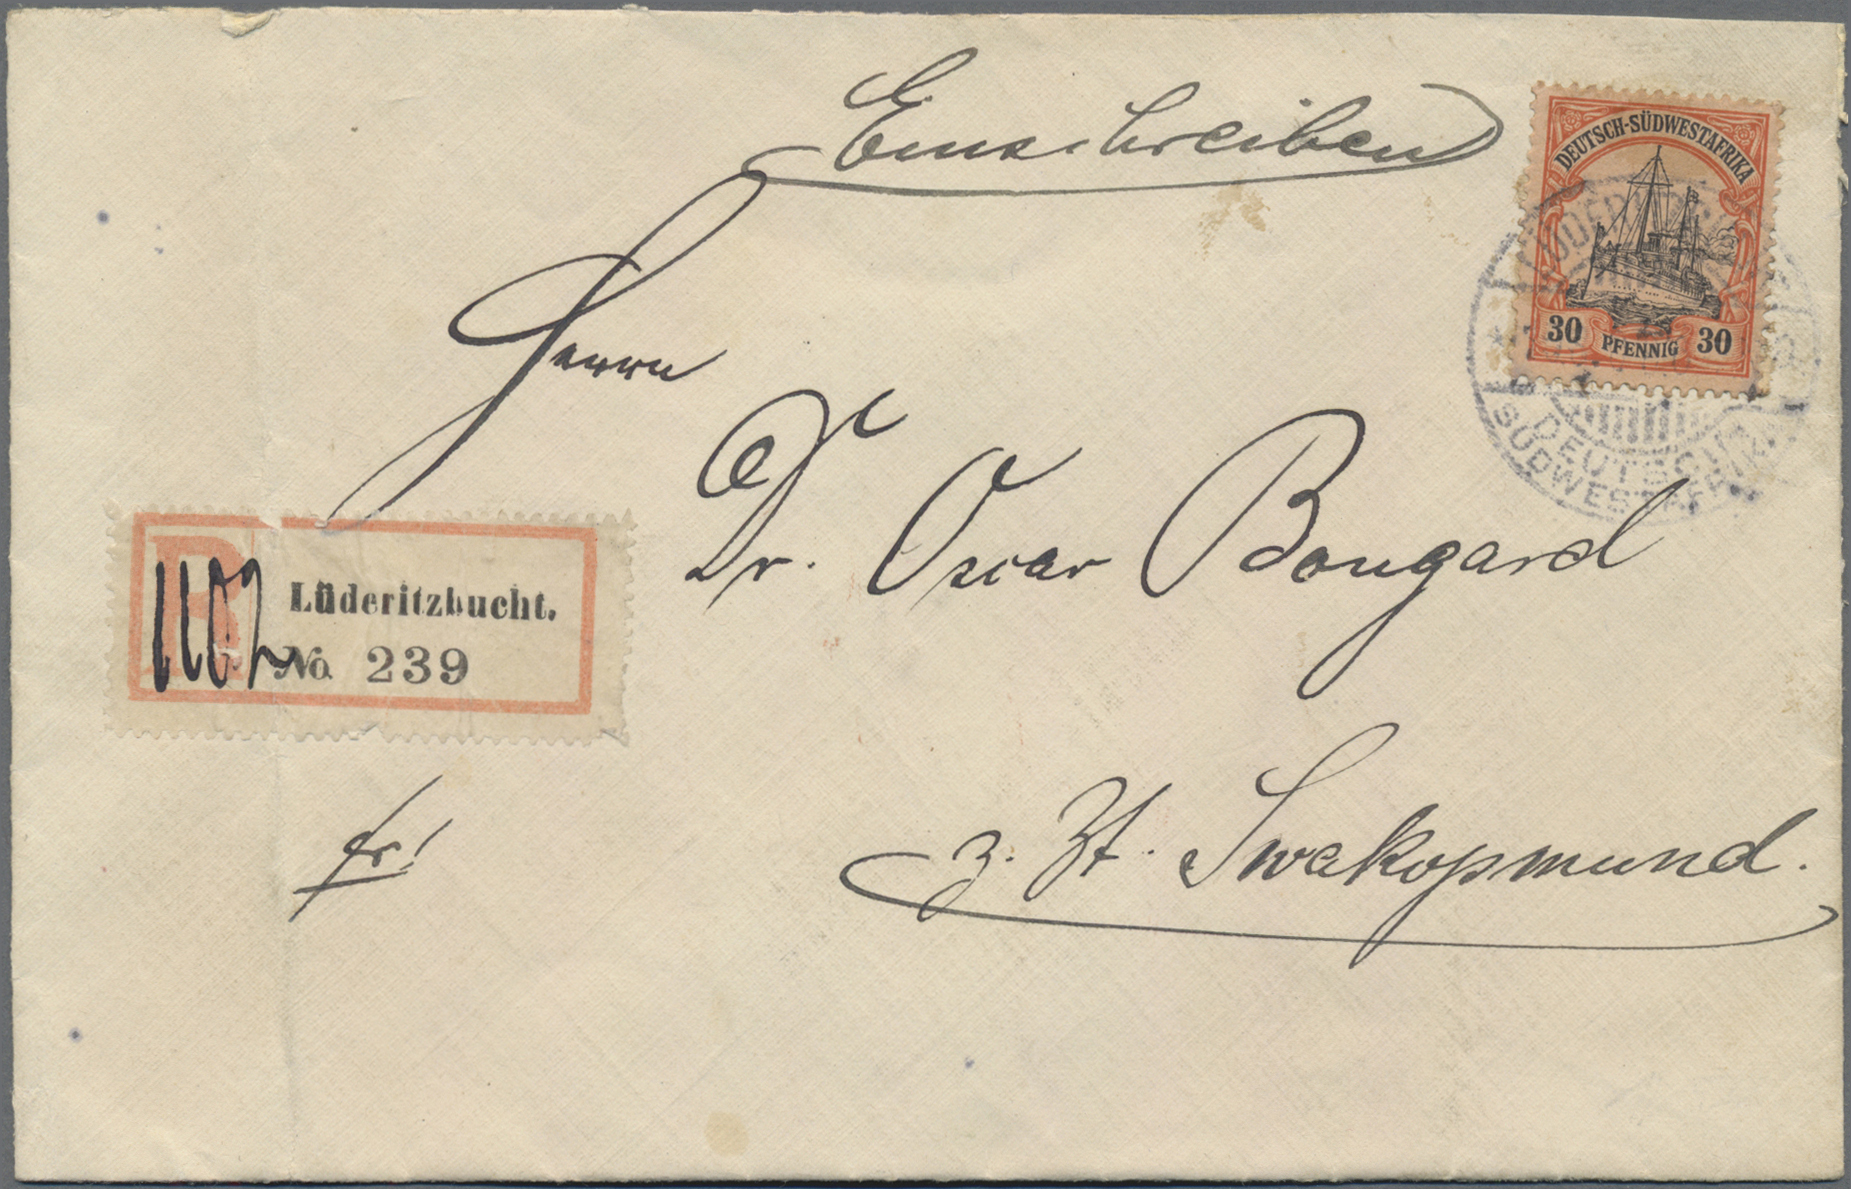 Einschreiben
DEUTSCH-SÜDWESTAFRIKA
30 PFENNIG 30
DEUTSCH
SÜDWESTAFRIKA
Herrn
Dr. Oscar Bongard
R
1102
Lüderitzbucht.
No. 239
fr!
z. Zt. Swakopmund.